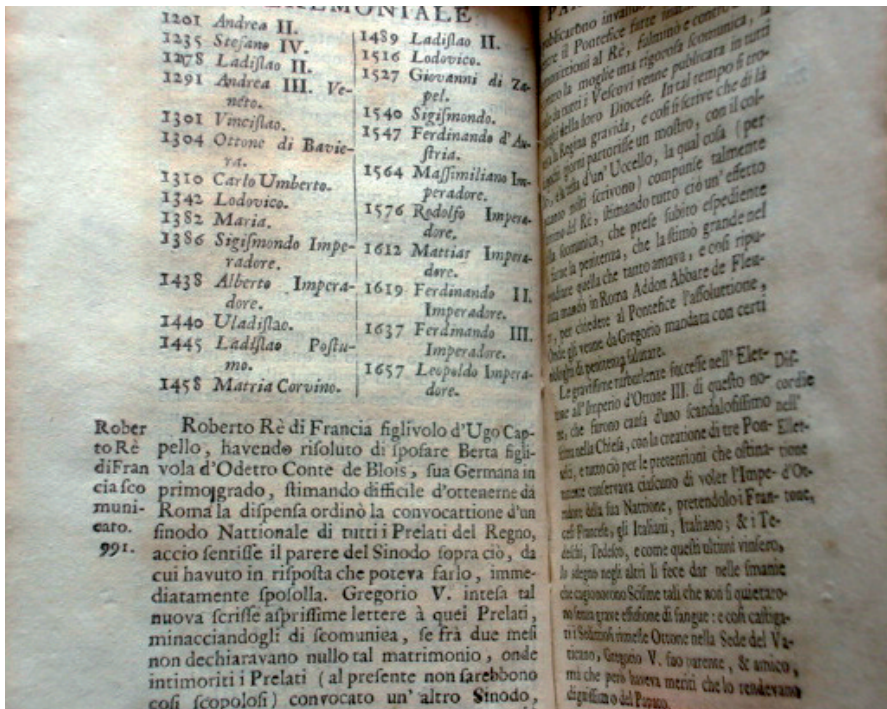 EMONTALE
1201 Andrea II.
1235 Stefano IV.
1278 Ladiſlao II.
1291 Andrea III. Ve-
neto.
1301 Vinciſlao.
1304 Ottone di Bavie-
ra.
1310 Carlo Umberto.
1342 Lodovico.
1382 Maria.
1386 Sigiſmondo Impe-
radore.
1438 Alberto Impera-
dore.
1440 Uladiſlao.
1445 Ladiſlao Poſtu-
mo.
1458 Mattia Corvino.
1489 Ladiſlao II.
1516 Lodovico.
1527 Giovanni di Za-
pel.
1540 Sigiſmondo.
1547 Ferdinando d'Au-
ſtria.
1564 Maſſimiliano Im-
peradore.
1576 Rodolfo Impera-
dore.
1612 Mattiar Impera-
dore.
1619 Ferdinando II.
Imperadore.
1637 Ferdinando III.
Imperadore.
1657 Leopoldo Impera-
dore.
Rober
to Rè
di Fran
cia ſco
muni-
cato.
991.
Roberto Rè di Francia figlivolo d'Ugo Cap-
pello, havendo riſoluto di ſpoſare Berta figli-
vola d'Odetro Conte de Blois, ſua Germana in
primo grado, ſtimando difficile d'ottenerne da
Roma la diſpenſa ordinò la convocattione d'un
ſinodo Nattionale di tutti i Prelati del Regno,
accio ſentiſſe il parere del Sinodo ſopra ciò, da
cui havuto in riſpoſta che poteva farlo, imme-
diatamente ſpoſolla. Gregorio V. inteſa tal
nuova ſcriſſe aſpriſſime lettere à quei Prelati,
minacciandogli di ſcomunica, ſe frà due meſi
non dechiaravano nullo tal matrimonio, onde
intimoriti i Prelati (al preſente non ſarebbono
coſi ſcopoloſi) convocato un'altro Sinodo,
publicarono
il Pontefice
al Rè, fulminò e contro
la moglie una rigoroſa ſcomunica, la
da tutti i Veſcovi venne publicata in tutti
della loro Dioceſe. In tal tempo ſi tro-
la Regina gravida, e coſi ſi ſcrive che di là
giorni partoriſſe un moſtro, con il col-
d'un' Uccello, la qual coſa (per
molti ſcrivono) compunſe talmente
del Rè, ſtimando tutto ciò un' effetto
ſcomunica, che preſe ſubito eſpediente
la penitenza, che la ſtimò grande nel
quella che tanto amava, e coſi ripu-
mandò in Roma Addon Abbate de Fleu-
per chiedere al Pontefice l'aſſoluttione,
Onde gli venne da Gregorio mandata con certi
di penitenza ſalutare.
Le graviſſime turbolenze ſucceſſe nell' Elet-
all' Imperio d'Ottone III. di queſto no-
che furono cauſa d'uno ſcandaloſiſſimo
nella Chieſa, con la creatione di tre Pon-
e tutto ciò per le pretentioni che oſtina-
conſervava ciaſcuno di voler l'Impe-
della ſua Nattione, pretendolo i Fran-
ceſi Franceſe, gli Italiani, Italiano; & i Te-
deſchi, Tedeſco, e come queſti ultimi vinſero,
lo ſdegno negli altri li fece dar nelle ſmanie
che cagionorono Sciſme tali che non ſi quietaro-
no ſenza grave effuſione di ſangue: e coſi caſtiga-
ti i Ottone nella Sede del Va-
ticano, Gregorio V. ſuo parente, & amico,
mà che però haveva meriti che lo rendevano
digniſſimo del Papato.
Diſ-
cordie
nell'
Elet-
tione
d'Ot-
tone,